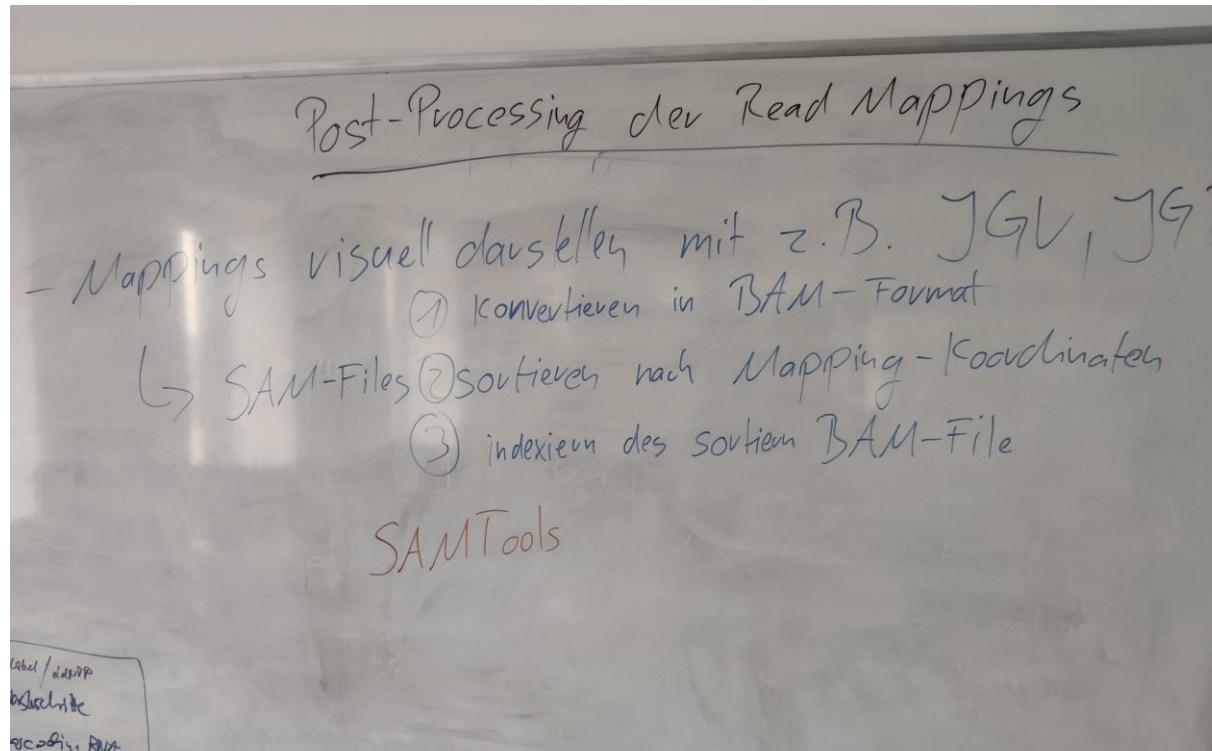 Post-Processing der Read Mappings
- Mappings visuell darstellen mit z.B. IGV, IG
① Konvertieren in BAM-Format
↳ SAM-Files ② sortieren nach Mapping-Koordinaten
③ indexiern des sortiern BAM-File
SAMTools
label /